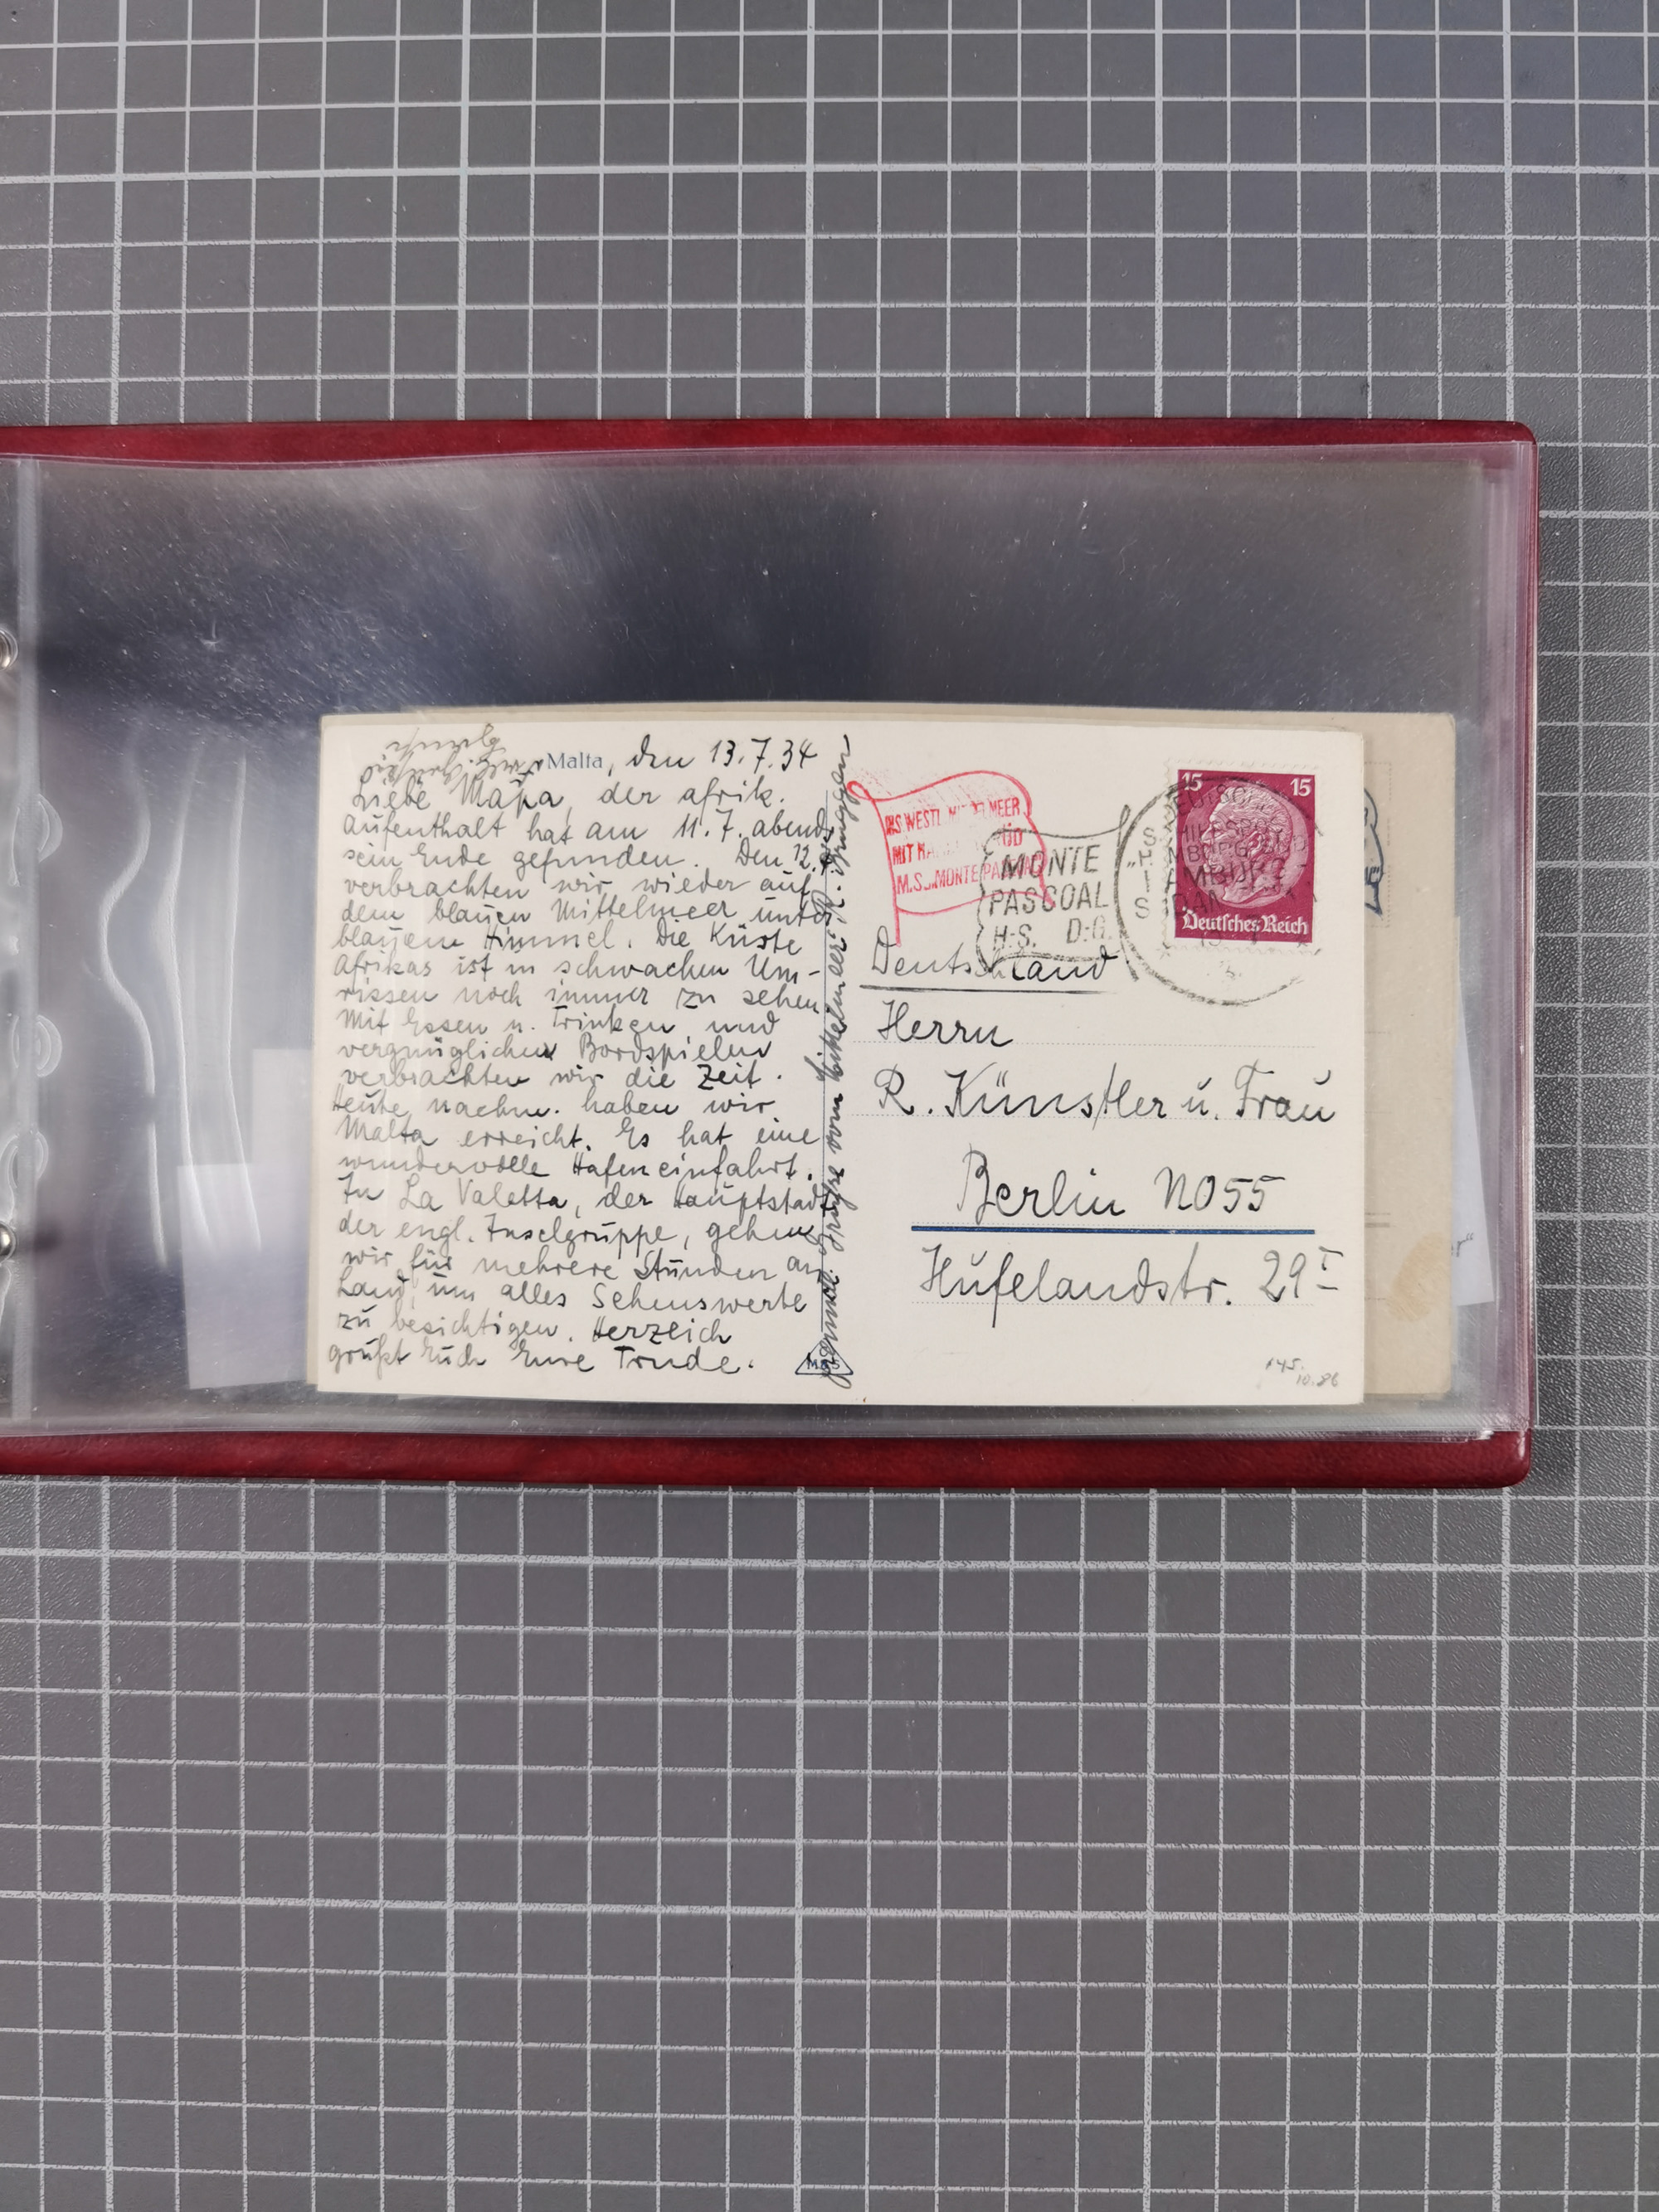 Malta, den 13.7.34
Liebe Mapa, der afrik.
Aufenthalt hat am 11.7. abends
sein Ende gefunden. Den 12.7.
verbrachten wir wieder auf
dem blauen Mittelmeer unter
blauem Himmel. Die Küste
Afrikas ist in schwachen Um-
rissen noch immer zu sehen
Mit Essen u. Trinken und
vergnüglichen Bordspielen
verbrachten wir die Zeit.
Heute nachm. haben wir
Malta erreicht. Es hat eine
wundervolle Hafeneinfahrt.
In La Valetta, der Hauptstadt
der engl. Inselgruppe, gehen
wir für mehrere Stunden an
Land, um alles Sehenswerte
zu besichtigen. Herzlich
grüßt Euch Eure Trude.
vom Mittelmeer
WESTL. MITTELMEER
MIT
M.S. MONTE PASCOAL
MONTE
PASCOAL
H.S. D.G.
15 15
Deutsches Reich
Deutschland
Herrn
R. Künstler u. Frau
Berlin NO55
Hufelandstr. 29 I
145.
10.86